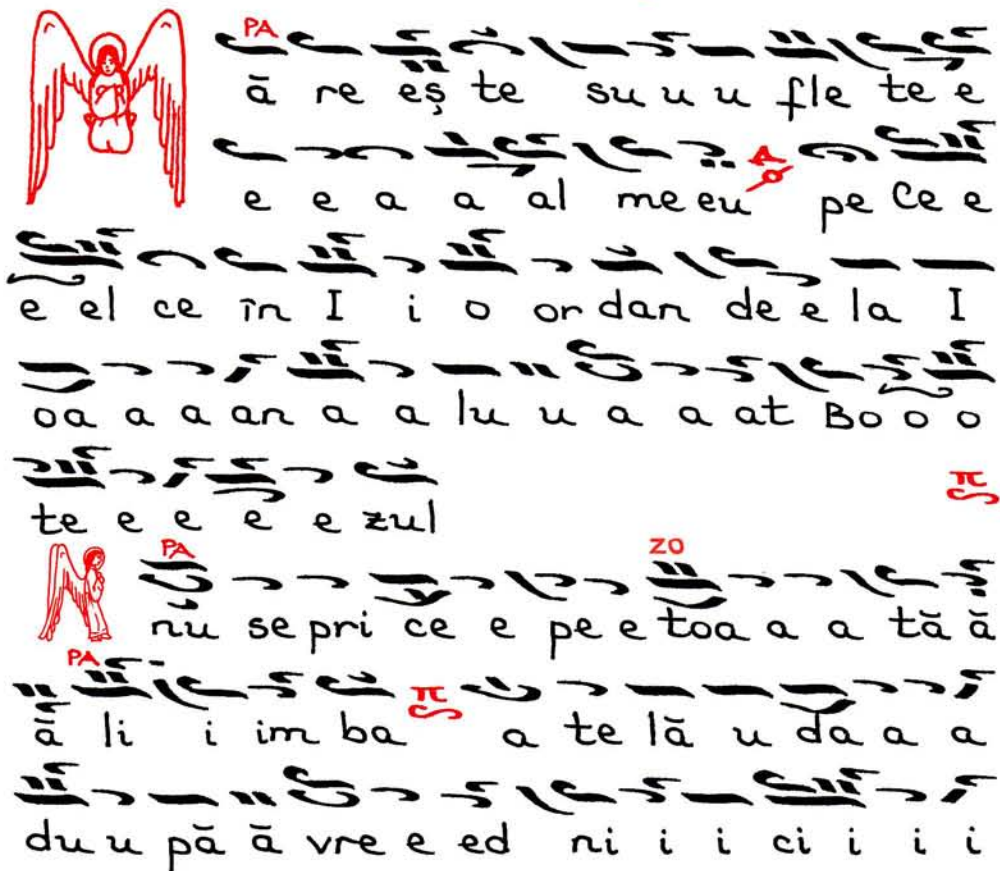 PA
ă re eș te su u u fle te e
e e a a al me eu pe ce e
e el ce în I i o or dan de e la I
oa a a an a a lu u a a at Bo o o
te e e e e zul
π
PA ZO
nu se pri ce e pe e toa a a tă ă
PA
ă li i im ba π a te lă u da a a
du u pă ă vre e ed ni i i ci i i i